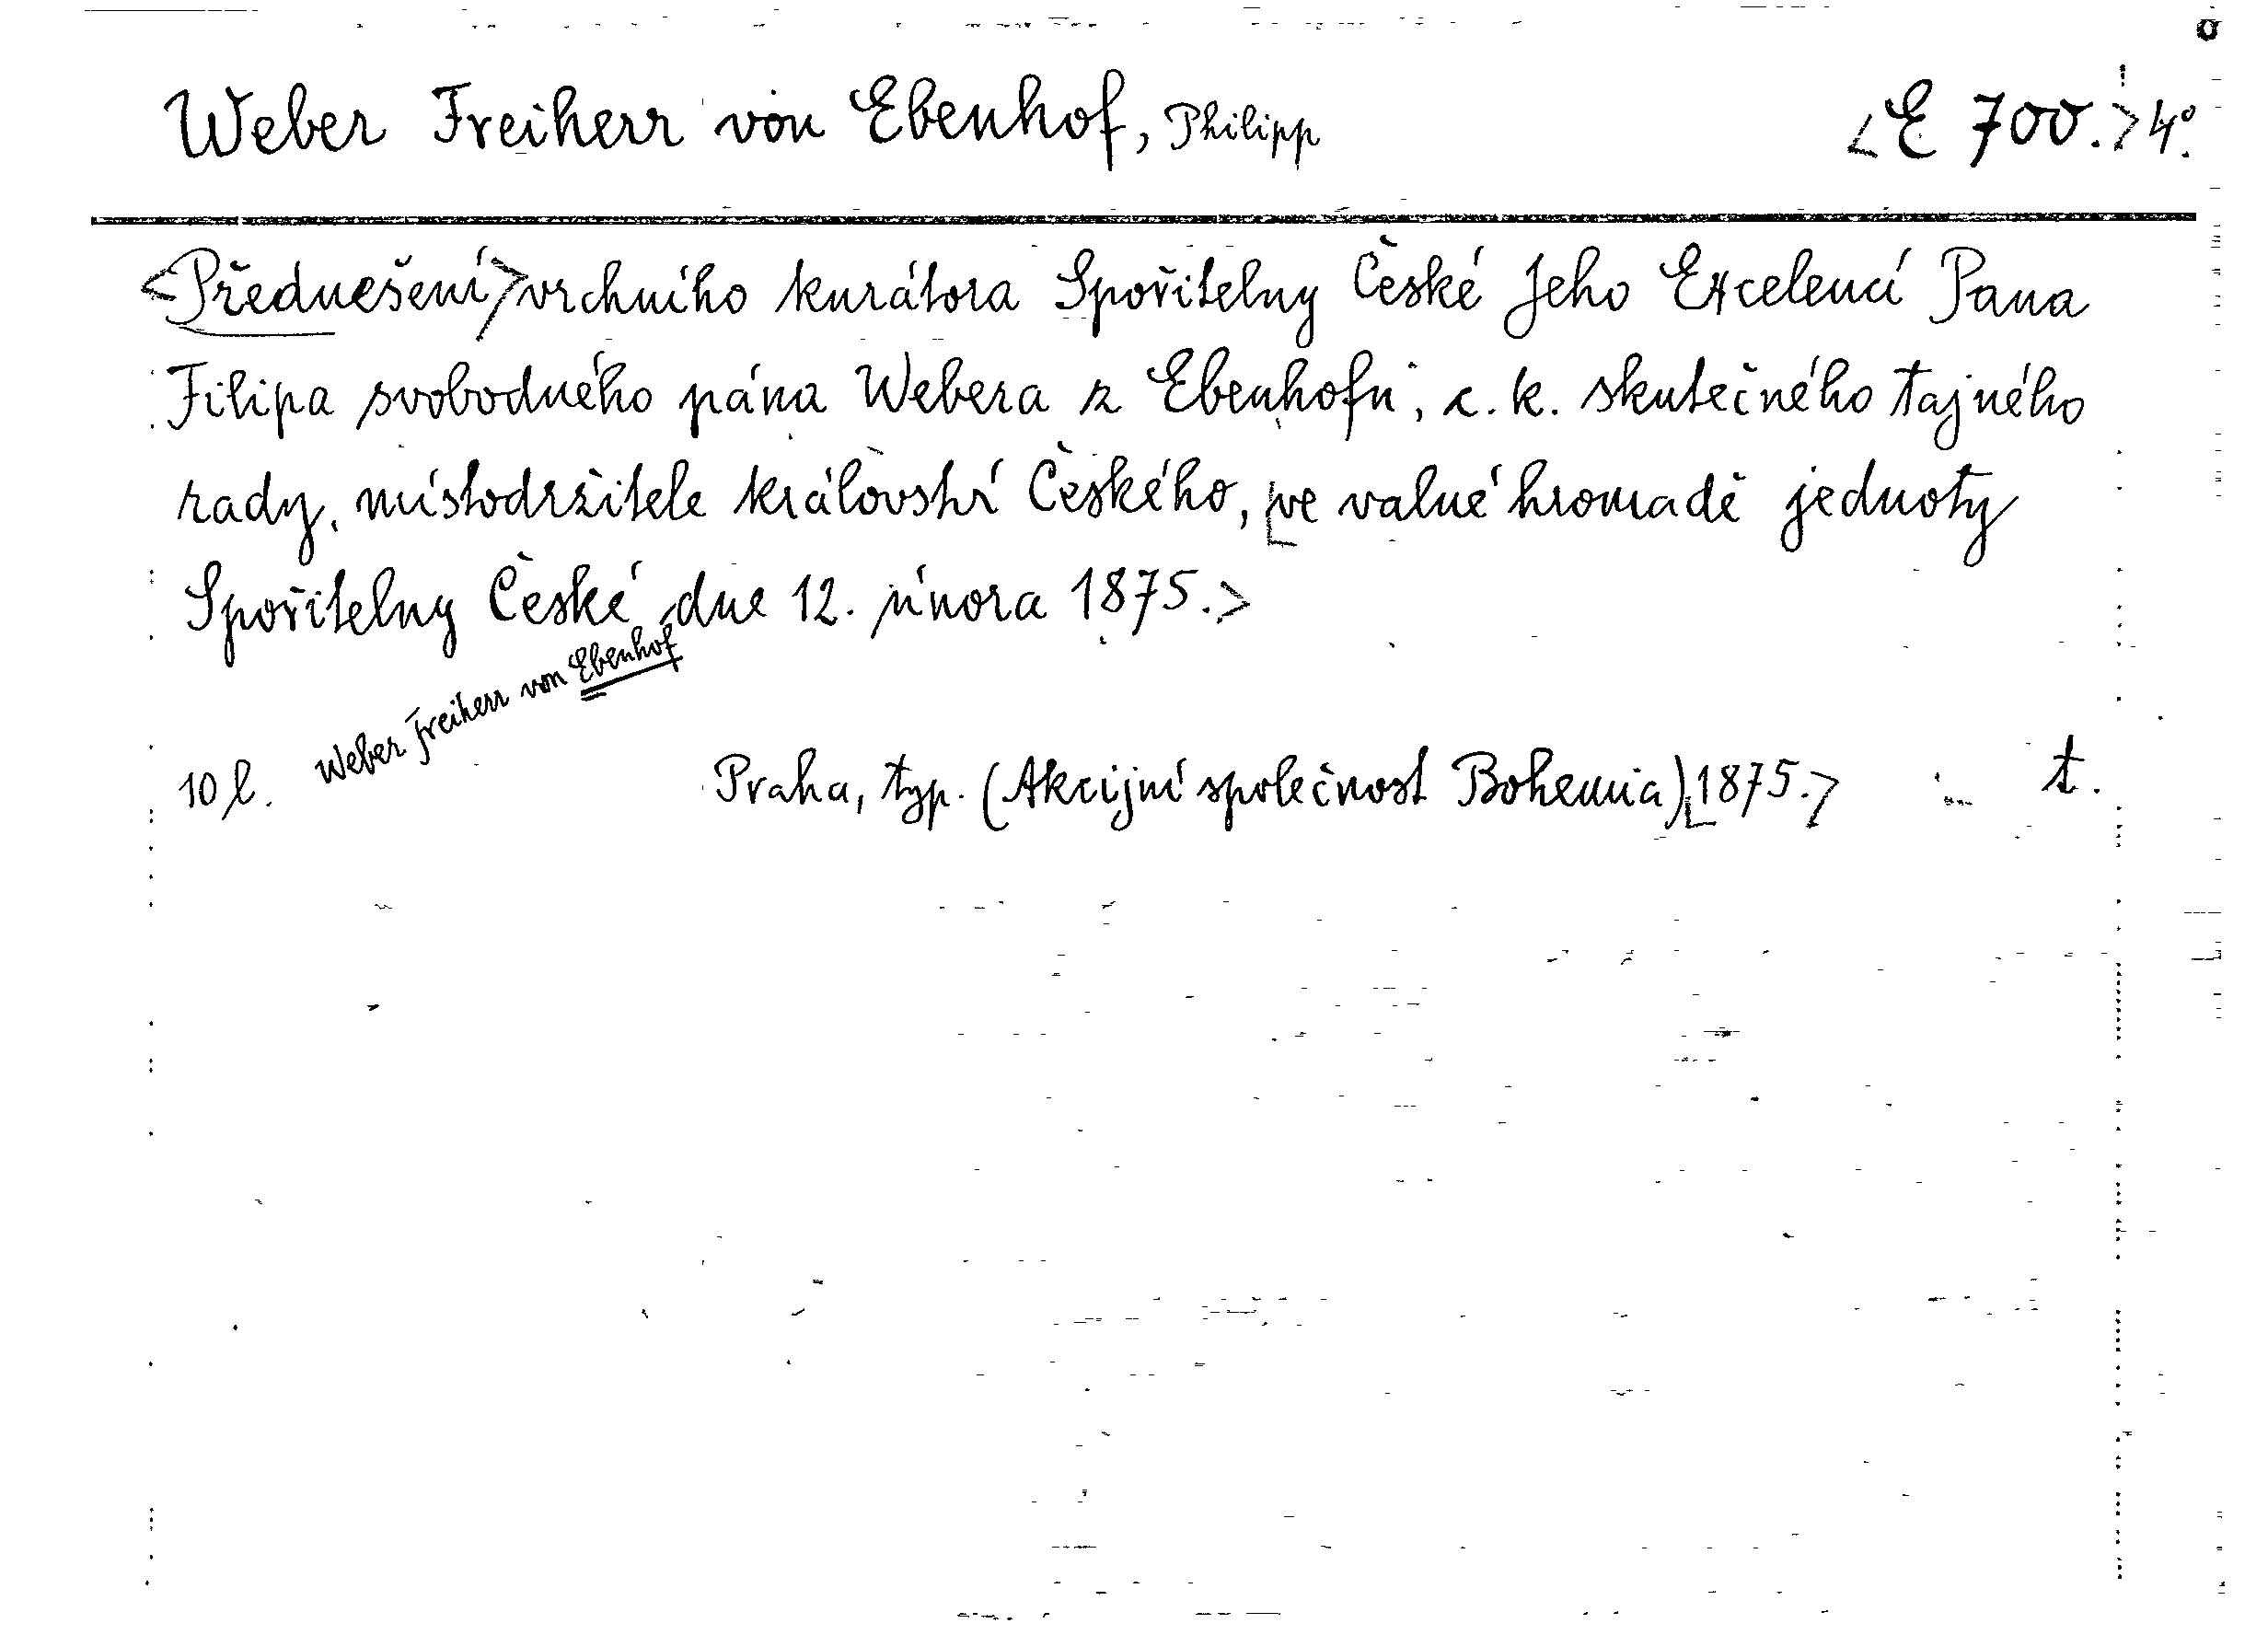 Weber Freiherr von Ebenhof, Philipp <E 700.> 4°.
<Přednešení> vrchního kurátora Spořitelny České Jeho Excelencí Pana
Filipa svobodného pána Webera z Ebenhofu, c. k. skutečného tajného
rady, místodržitele království Českého, [ve valné hromadě jednoty
Spořitelny České dne 12. února 1875.>
Weber Freiherr von Ebenhof
10 l. Praha, typ. (Akcijní společnost Bohemia) [1875.> t.